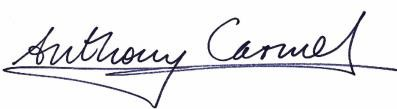 Anthony Carmel